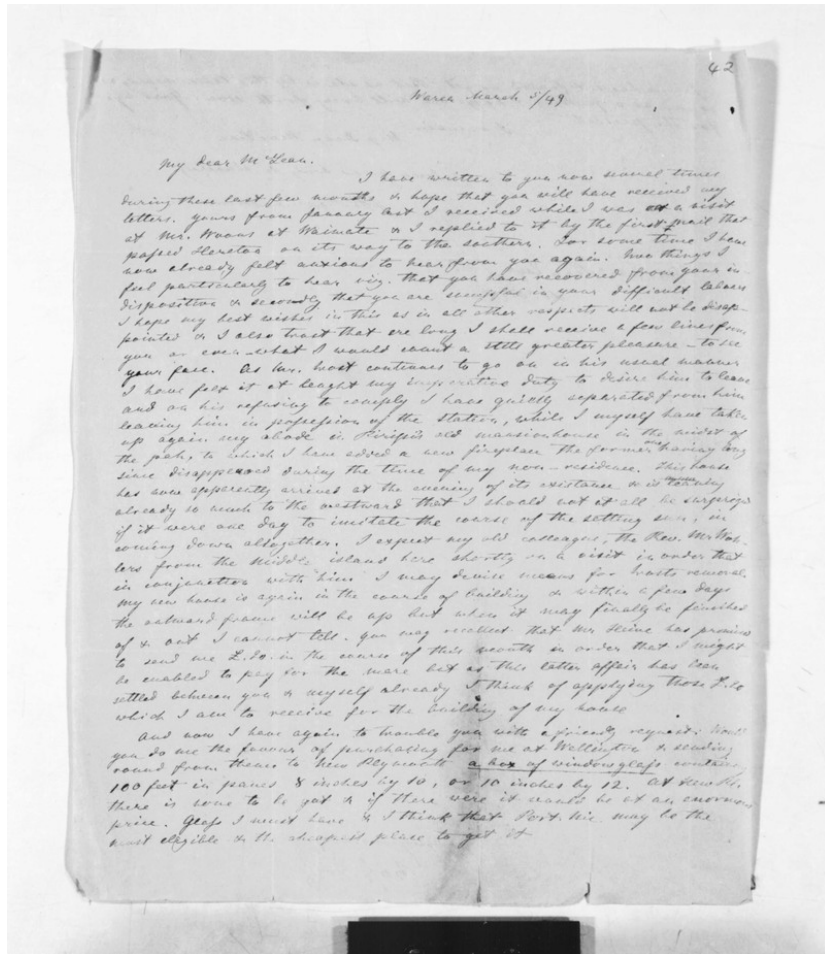 42
Warea March 5/49
My dear McLean.
I have written to you now several times
during these last few months & hope that you will have received my
letters. yours from January last I received while I was on a visit
at Mr. Woons at Waimate & I replied to it by the first mail that
passed Hereton on its way to the soethern. For some time I have
now already felt anxious to hear from you again. Two things I
feel particularly to hear viz. that you have recovered from your in-
disposition & secondly that you are successful in your difficult labours
I hope my best wishes in this as in all other respects will not be disap-
pointed & I also trust that ere long I shall receive a few lines from
you or even what I would count a still greater pleasure - to see
your face. As Mr. Trost continues to go on in his usual manner
I have felt it at lenght my imperative duty to desire him to leave
and on his refusing to comply I have quietly separated from him
leaving him in possession of the station, while I myself have taken
up again my abode in old mansionhouse in the midst of
the pah, to which I have added a new fireplace the former one having long
since disappeared during the time of my non-residence. This house
has now apparently arrived at the evening of its existance & is
already so much to the westward that I should not at all be surprised
if it were one day to imitate the course of the setting sun, in
coming down altogether. I expect my old colleague, the Rev. Mr Woh-
lers from the Middle island here shortly on a visit in order that
in conjunction with him I may devise means for Trosts removal.
My new house is again in the course of building & within a few days
the outward frame will be up but when it may finally be finished
of & out I cannot tell. you may recollect that Mr Heine has promised
to send me £.30. in the course of this month in order that I might
be enabled to pay for the mare but as this latter affair has been
settled between you & myself already I think of applying those £.30
which I am to receive for the building of my house
And now I have again to trouble you with a friendly request: Would
you do me the favour of purchasing for me at Wellington & sending
round from thence to New Plymouth a box of windowglass containing
100 feet in panes 8 inches by 10, or 10 inches by 12. At New Pl.
there is none to be got & if there were it would be at an enormous
price. Glass I must have & I think that Port Nic may be the
most elegible & the cheapest place to get it